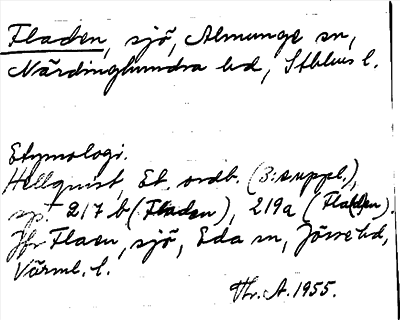 Fladen, sjö, Almunge sn,
Närdinghundra hd, Sthlms l.
Etymologi.
Hellquist, Et. ordb. (3: suppl.),
sp. 217 b (Fladen), 219a (Fla(d)en).
Jfr Flaen, sjö, Eda sn, Jösse hd,
Värml. l.
Hr. A. 1955.